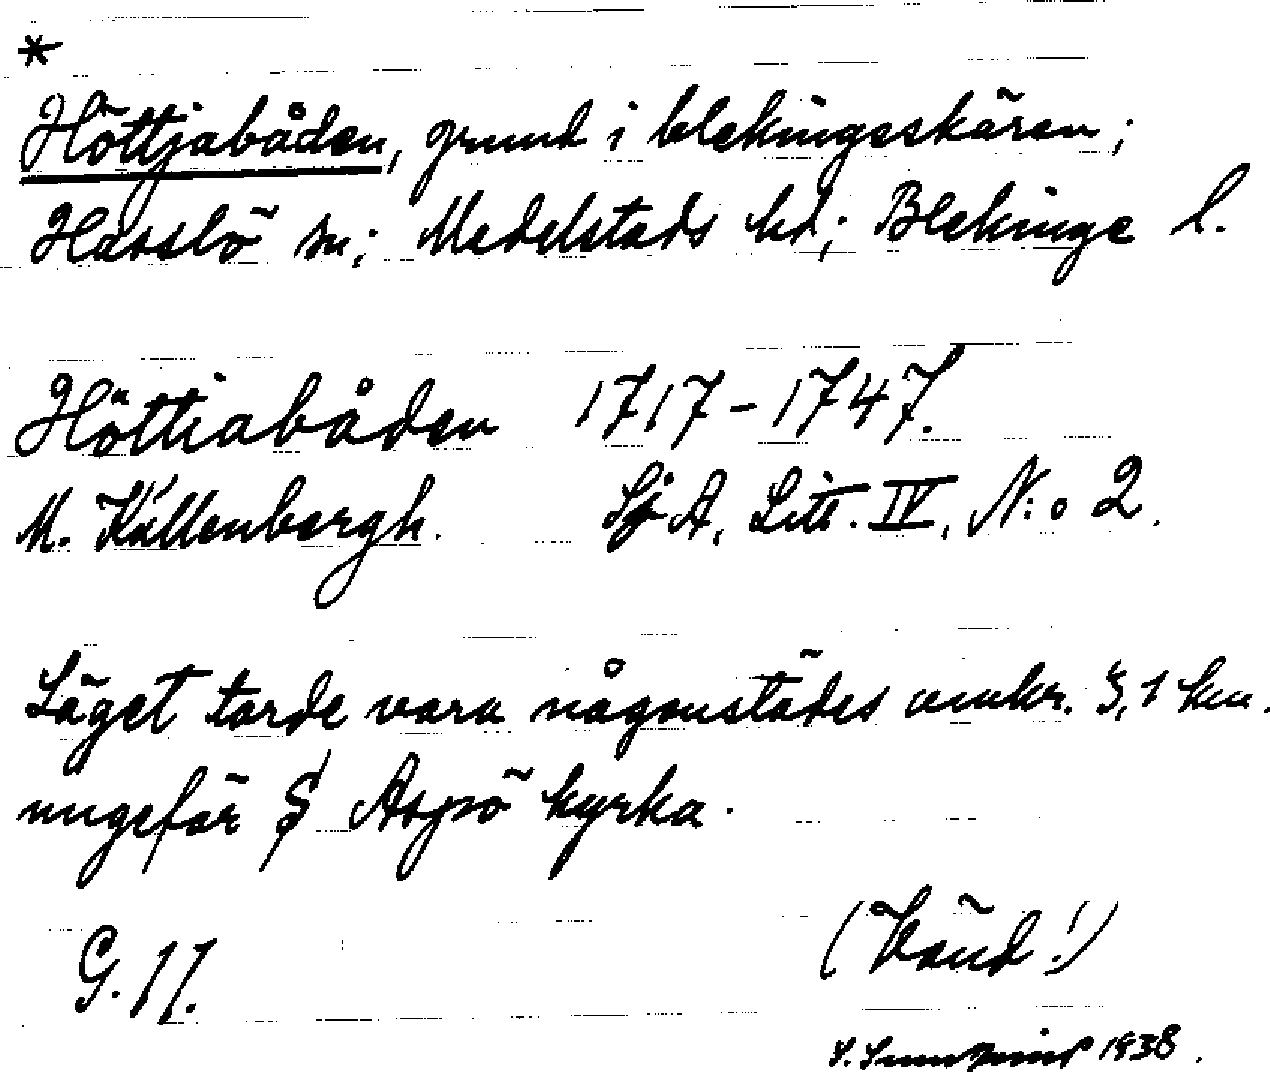 *
Höttjabåden, grund i blekingeskären;
Hasslö sn; Medelstads hd; Blekinge l.
Höttiabåden 1717-1747.
M. Källenbergh. SjA, Litt. IV, N:o 2.
Läget torde vara någonstädes omkr. 3,1 km.
ungefär S Aspö kyrka.
(Vänd!)
G. 17.
1938.